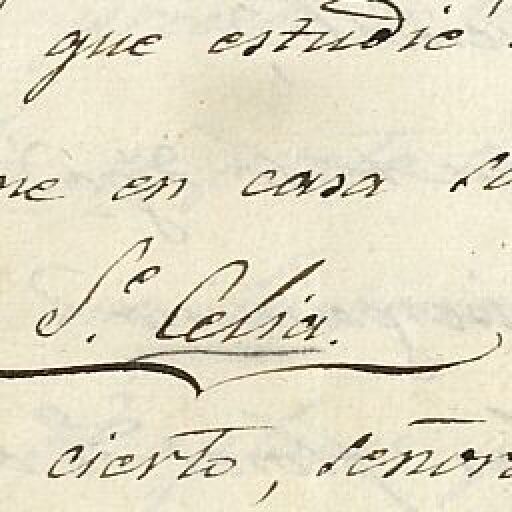 que estudié
me en casa
S.e Celia.
cierto, señor